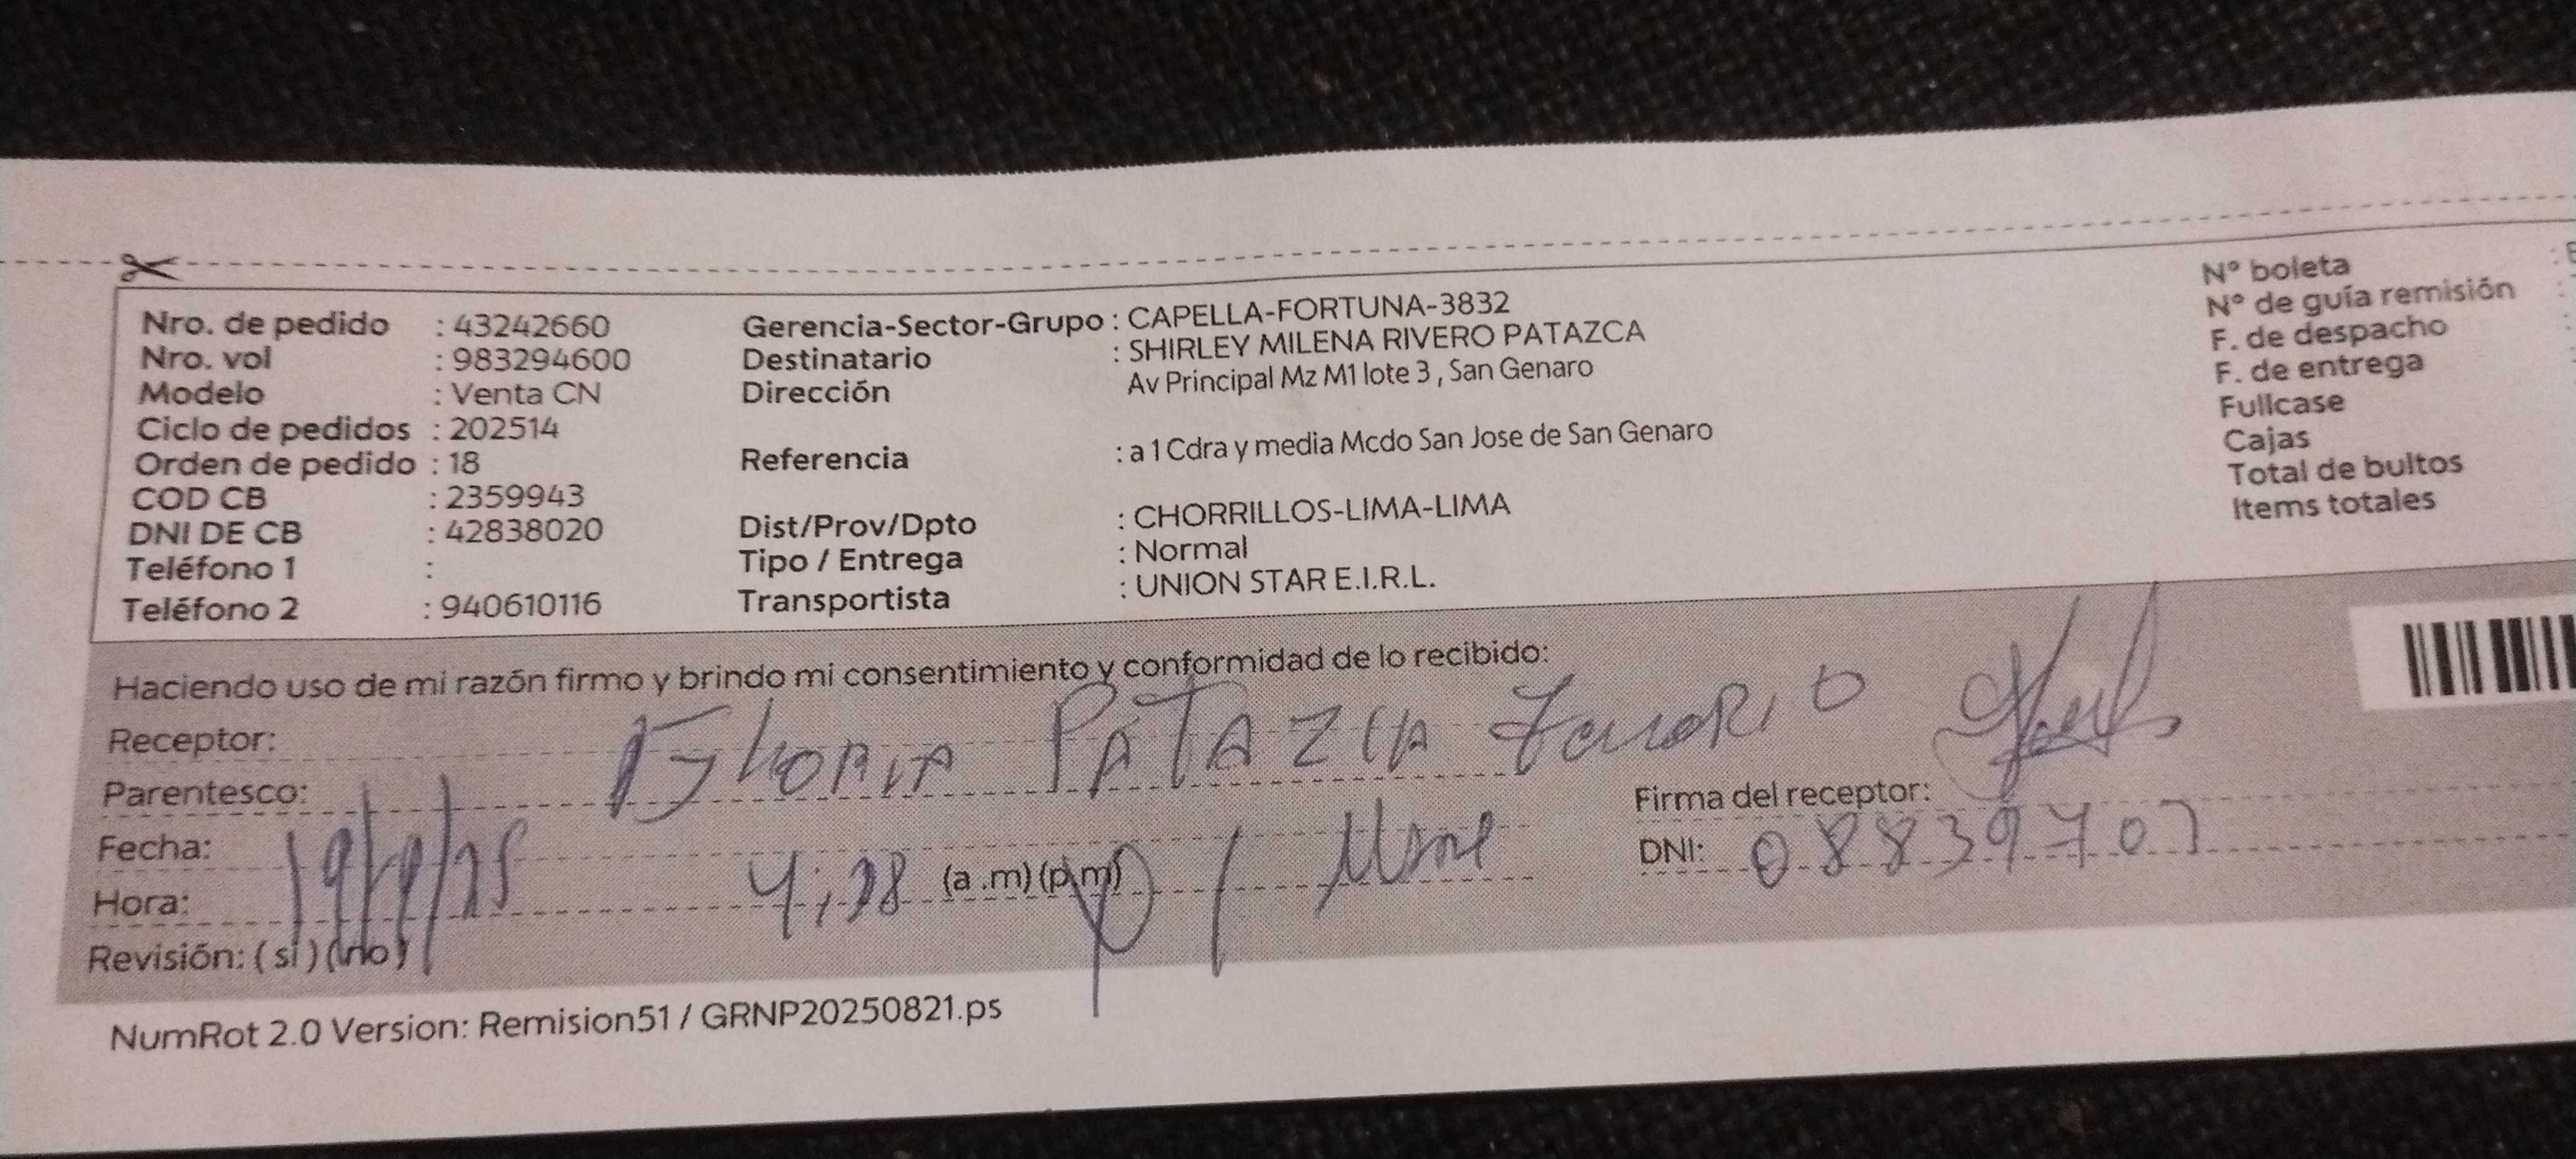 Nro. de pedido : 43242660
Nro. vol : 983294600
Modelo : Venta CN
Ciclo de pedidos : 202514
Orden de pedido : 18
COD CB : 2359943
DNI DE CB : 42838020
Teléfono 1 :
Teléfono 2 : 940610116
Gerencia-Sector-Grupo : CAPELLA-FORTUNA-3832
Destinatario : SHIRLEY MILENA RIVERO PATAZCA
Dirección Av Principal Mz M1 lote 3 , San Genaro
Referencia : a 1 Cdra y media Mcdo San Jose de San Genaro
Dist/Prov/Dpto : CHORRILLOS-LIMA-LIMA
Tipo / Entrega : Normal
Transportista : UNION STAR E.I.R.L.
N° boleta
N° de guía remisión
F. de despacho
F. de entrega
Fullcase
Cajas
Total de bultos
Items totales
Haciendo uso de mi razón firmo y brindo mi consentimiento y conformidad de lo recibido:
Receptor:
Parentesco:
Firma del receptor:
Fecha:
DNI: 08839707
Hora: (a .m) (p.m)
Revisión: ( si ) ( no )
NumRot 2.0 Version: Remision51 / GRNP20250821.ps